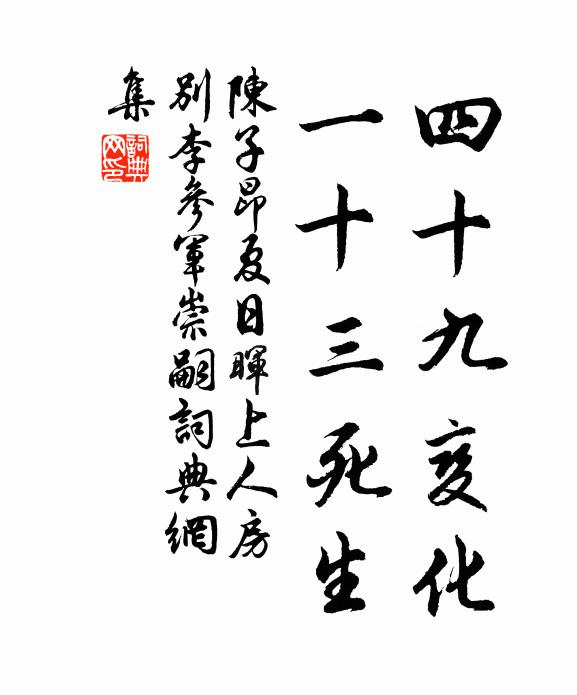 四十九变化
一十三死生
陳子昂夏日暉上人房
别李參軍崇嗣詞典網
集
詞典
网印